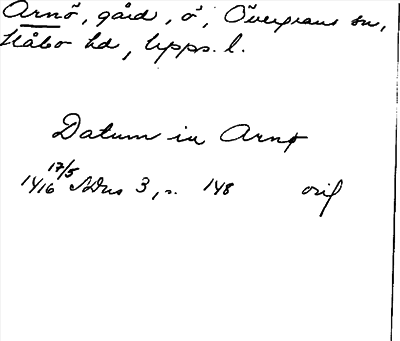 Arnö, gård, ö, Övergrans sn,
Håbo hd, Upps. l.
Datum in Arnø
1416 17/5 SDns 3, s. 148 orig